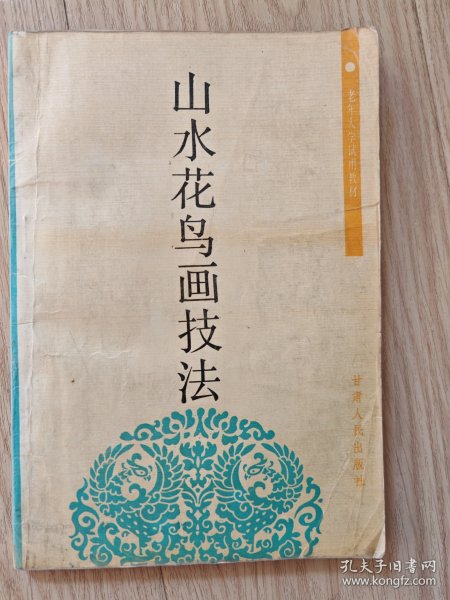 老年大学试用教材
山水花鸟画技法
甘肃人民出版社
孔夫子旧书网
www.kongfz.com